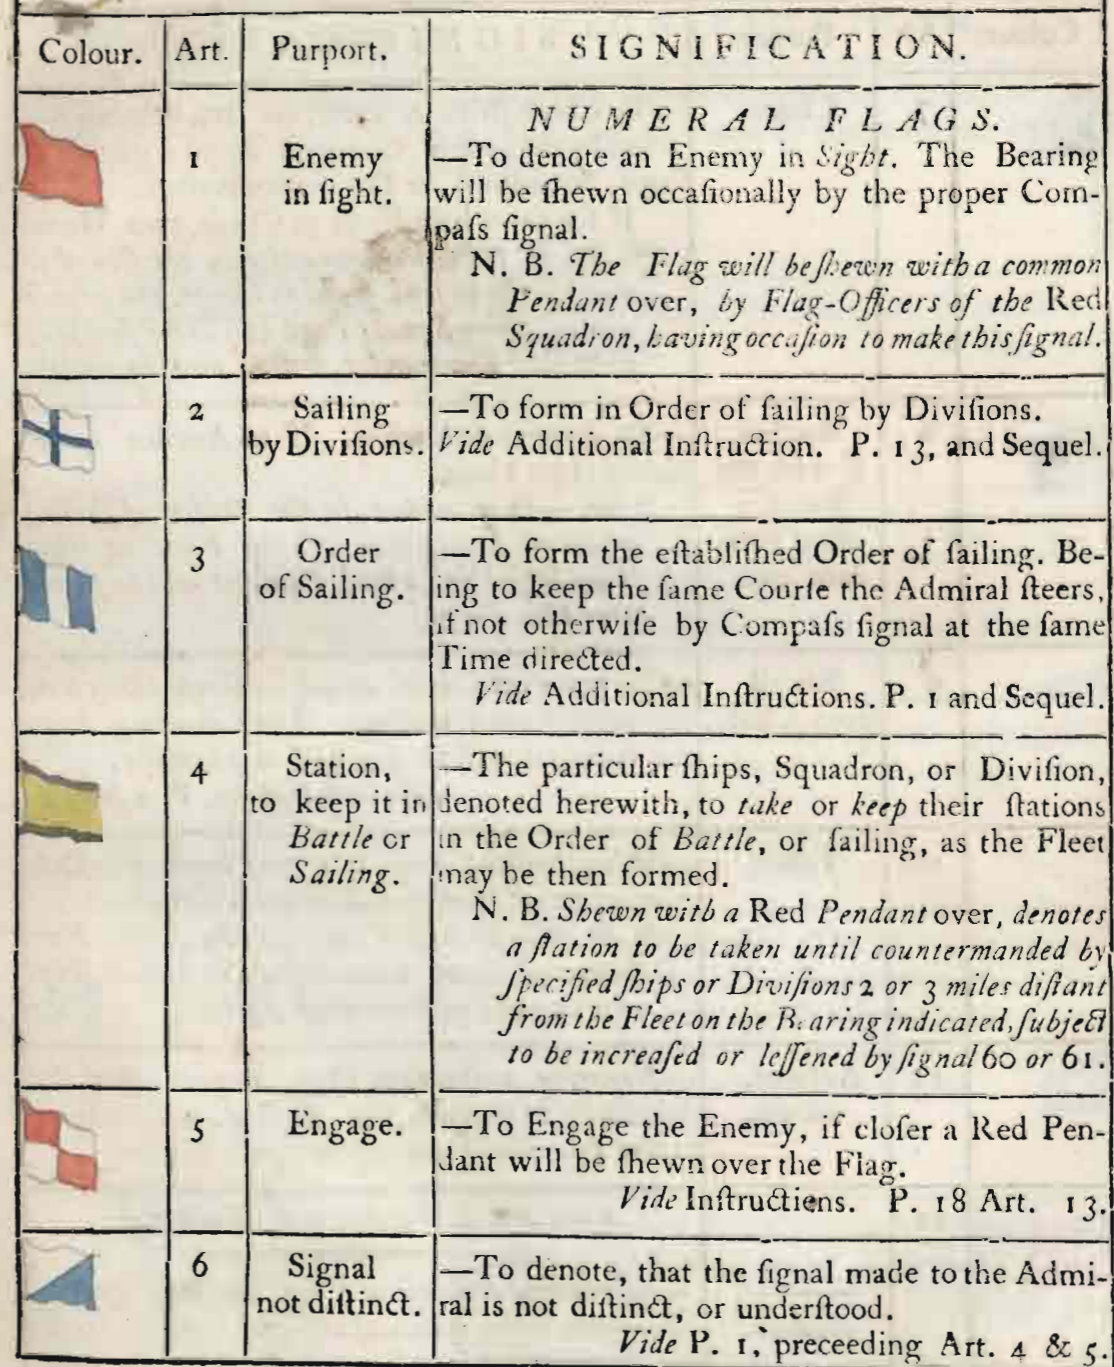 Colour. Art. Purport. SIGNIFICATION.
NUMERAL FLAGS.
1 Enemy in ſight.
—To denote an Enemy in Sight. The Bearing
will be ſhewn occaſionally by the proper Com-
paſs ſignal.
N. B. The Flag will be ſhewn with a common
Pendant over, by Flag-Officers of the Red
Squadron, having occaſion to make this ſignal.
2 Sailing
by Diviſions.
—To form in Order of ſailing by Diviſions.
Vide Additional Inſtruction. P. 13, and Sequel.
3 Order
of Sailing.
—To form the eſtabliſhed Order of ſailing. Be-
ing to keep the ſame Courſe the Admiral ſteers,
if not otherwiſe by Compaſs ſignal at the ſame
Time directed.
Vide Additional Inſtructions. P. 1 and Sequel.
4 Station,
to keep it in
Battle or
Sailing.
—The particular ſhips, Squadron, or Diviſion,
denoted herewith, to take or keep their ſtations
in the Order of Battle, or ſailing, as the Fleet
may be then formed.
N. B. Shewn with a Red Pendant over, denotes
a ſtation to be taken until countermanded by
ſpecified ſhips or Diviſions 2 or 3 miles diſtant
from the Fleet on the Bearing indicated, ſubject
to be increaſed or leſſened by ſignal 60 or 61.
5 Engage.
—To Engage the Enemy, if cloſer a Red Pen-
dant will be ſhewn over the Flag.
Vide Inſtructiens. P. 18 Art. 13.
6 Signal
not diſtinct.
—To denote, that the ſignal made to the Admi-
ral is not diſtinct, or underſtood.
Vide P. 1, preceeding Art. 4 & 5.